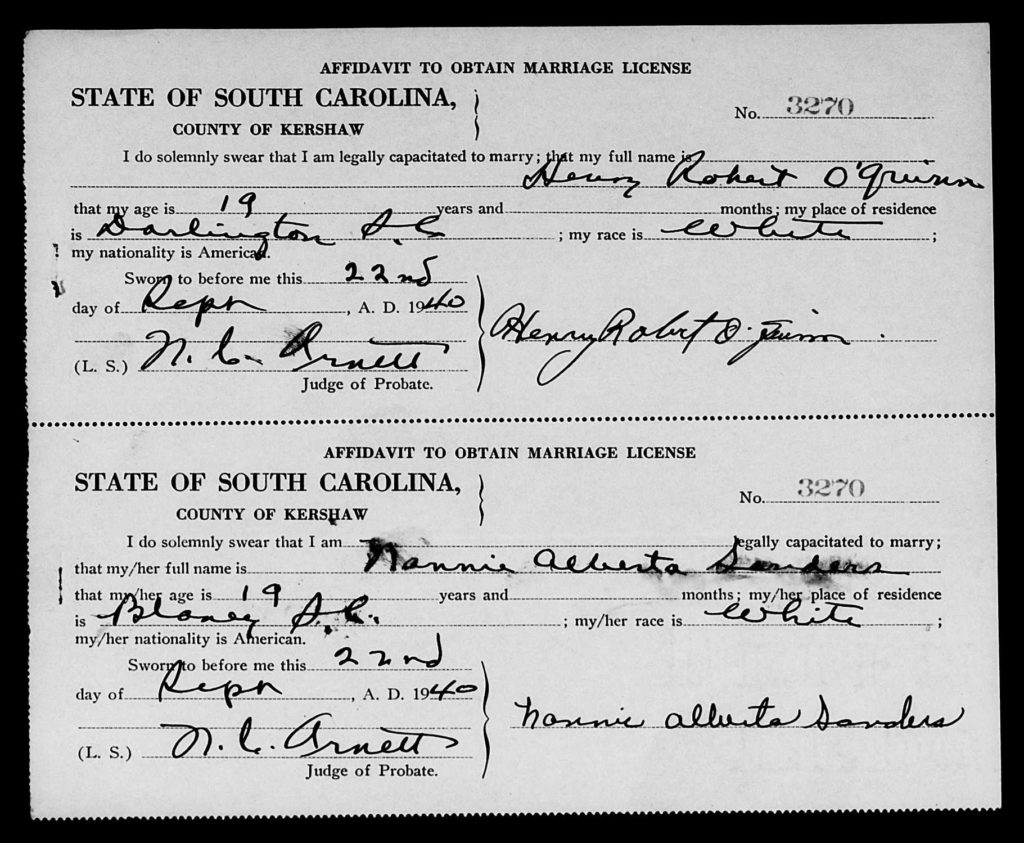 AFFIDAVIT TO OBTAIN MARRIAGE LICENSE
STATE OF SOUTH CAROLINA,
No. 3270
COUNTY OF KERSHAW
I do solemnly swear that I am legally capacitated to marry; that my full name is
Henry Robert O'Quinn
that my age is 19 years and months; my place of residence
is Darlington S.C ; my race is White ;
my nationality is American.
Sworn to before me this 22nd
day of Sept , A. D. 1940
Henry Robert O'Quinn
(L. S.) N. C. Arnett
Judge of Probate.
AFFIDAVIT TO OBTAIN MARRIAGE LICENSE
STATE OF SOUTH CAROLINA,
No. 3270
COUNTY OF KERSHAW
I do solemnly swear that I am legally capacitated to marry;
that my/her full name is Nannie Alberta Sanders
that my/her age is 19 years and months; my/her place of residence
is Blaney S.C. ; my/her race is White ;
my/her nationality is American.
Sworn to before me this 22nd
day of Sept , A. D. 1940
Nannie Alberta Sanders
(L. S.) N. C. Arnett
Judge of Probate.